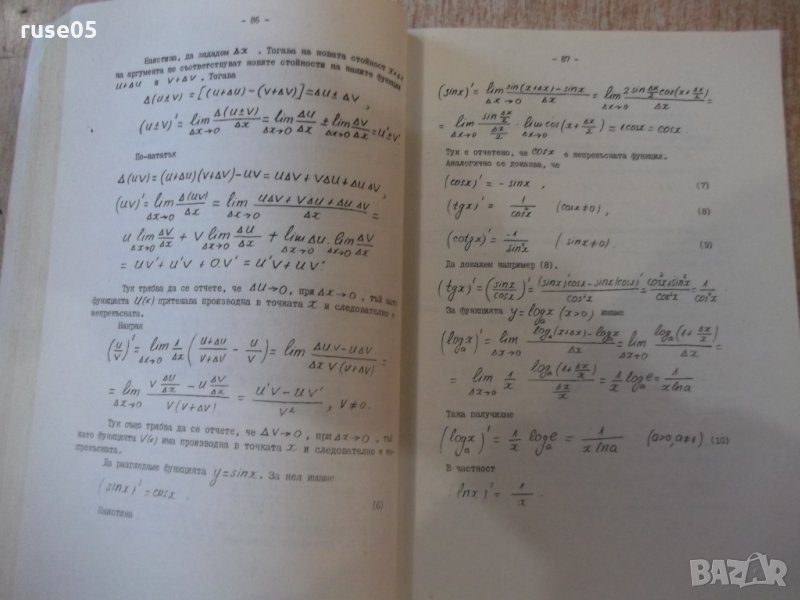 ruse05
- 86 -
Наистина, да зададем Δx. Тогава на новата стойност x+Δx
на аргумента ще съответнуват новите стойности на нашите функции
u+Δu и v+Δv. Тогава
Δ(u±v) = [(u+Δu)-(v+Δv)] = Δu ± Δv,
(u±v)' = lim Δx→0 Δ(u±v)/Δx = lim Δx→0 Δu/Δx ± lim Δx→0 Δv/Δx = u'±v'
По-нататък
Δ(uv) = (u+Δu)(v+Δv)-uv = uΔv + vΔu + ΔuΔv,
(uv)' = lim Δx→0 Δ(uv)/Δx = lim Δx→0 (uΔv + vΔu + ΔuΔv)/Δx =
u lim Δx→0 Δv/Δx + v lim Δx→0 Δu/Δx + lim Δu. lim Δx→0 Δv/Δx
= uv' + u'v + 0.v' = u'v + uv'
Тук трябва да се отчете, че Δu→0, при Δx→0, тъй като
функцията u(x) притежава производна в точката x и следователно е
непрекъсната.
Накрая
(u/v)' = lim Δx→0 1/Δx ((u+Δu)/(v+Δv) - u/v) = lim Δx→0 (Δu.v - uΔv)/(Δx v(v+Δv))
= lim Δx→0 (v Δu/Δx - u Δv/Δx)/(v(v+Δv)) = (u'v - uv')/v², v≠0.
Тук също трябва да се отчете, че Δv→0, при Δx→0, тъй
като функцията v(x) има производна в точката x и следователно е не-
прекъсната.
Да разгледаме функцията y=sinx. За нея имаме
(sinx)' = cosx. (6)
Наистина
- 87 -
(sinx)' = lim Δx→0 (sin(x+Δx)-sinx)/Δx = lim Δx→0 (2sin Δx/2 cos(x+Δx/2))/Δx =
= lim Δx→0 (sin Δx/2)/(Δx/2) . lim Δx→0 cos(x+Δx/2) = 1cosx = cosx.
Тук е отчетено, че cosx е непрекъсната функция.
Аналогично се доказва, че
(cosx)' = -sinx, (7)
(tgx)' = 1/cos²x (cosx≠0), (8)
(cotgx)' = -1/sin²x (sinx≠0). (9)
Да докажем например (8).
(tgx)' = (sinx/cosx)' = ((sinx)'cosx - sinx(cosx)')/cos²x = (cos²x+sin²x)/cos²x = 1/cos²x
За функцията y = logₐx (x>0) имаме
(logₐx)' = lim Δx→0 (logₐ(x+Δx)-logₐx)/Δx = lim Δx→0 logₐ(1+Δx/x)/Δx =
= lim Δx→0 1/x logₐ(1+Δx/x)/(Δx/x) = 1/x logₐe = 1/(x lna)
Така получихме
(logₐx)' = 1/x logₐe = 1/(x lna) (a>0, a≠1) (10)
В частност
(lnx)' = 1/x.
BAZAR